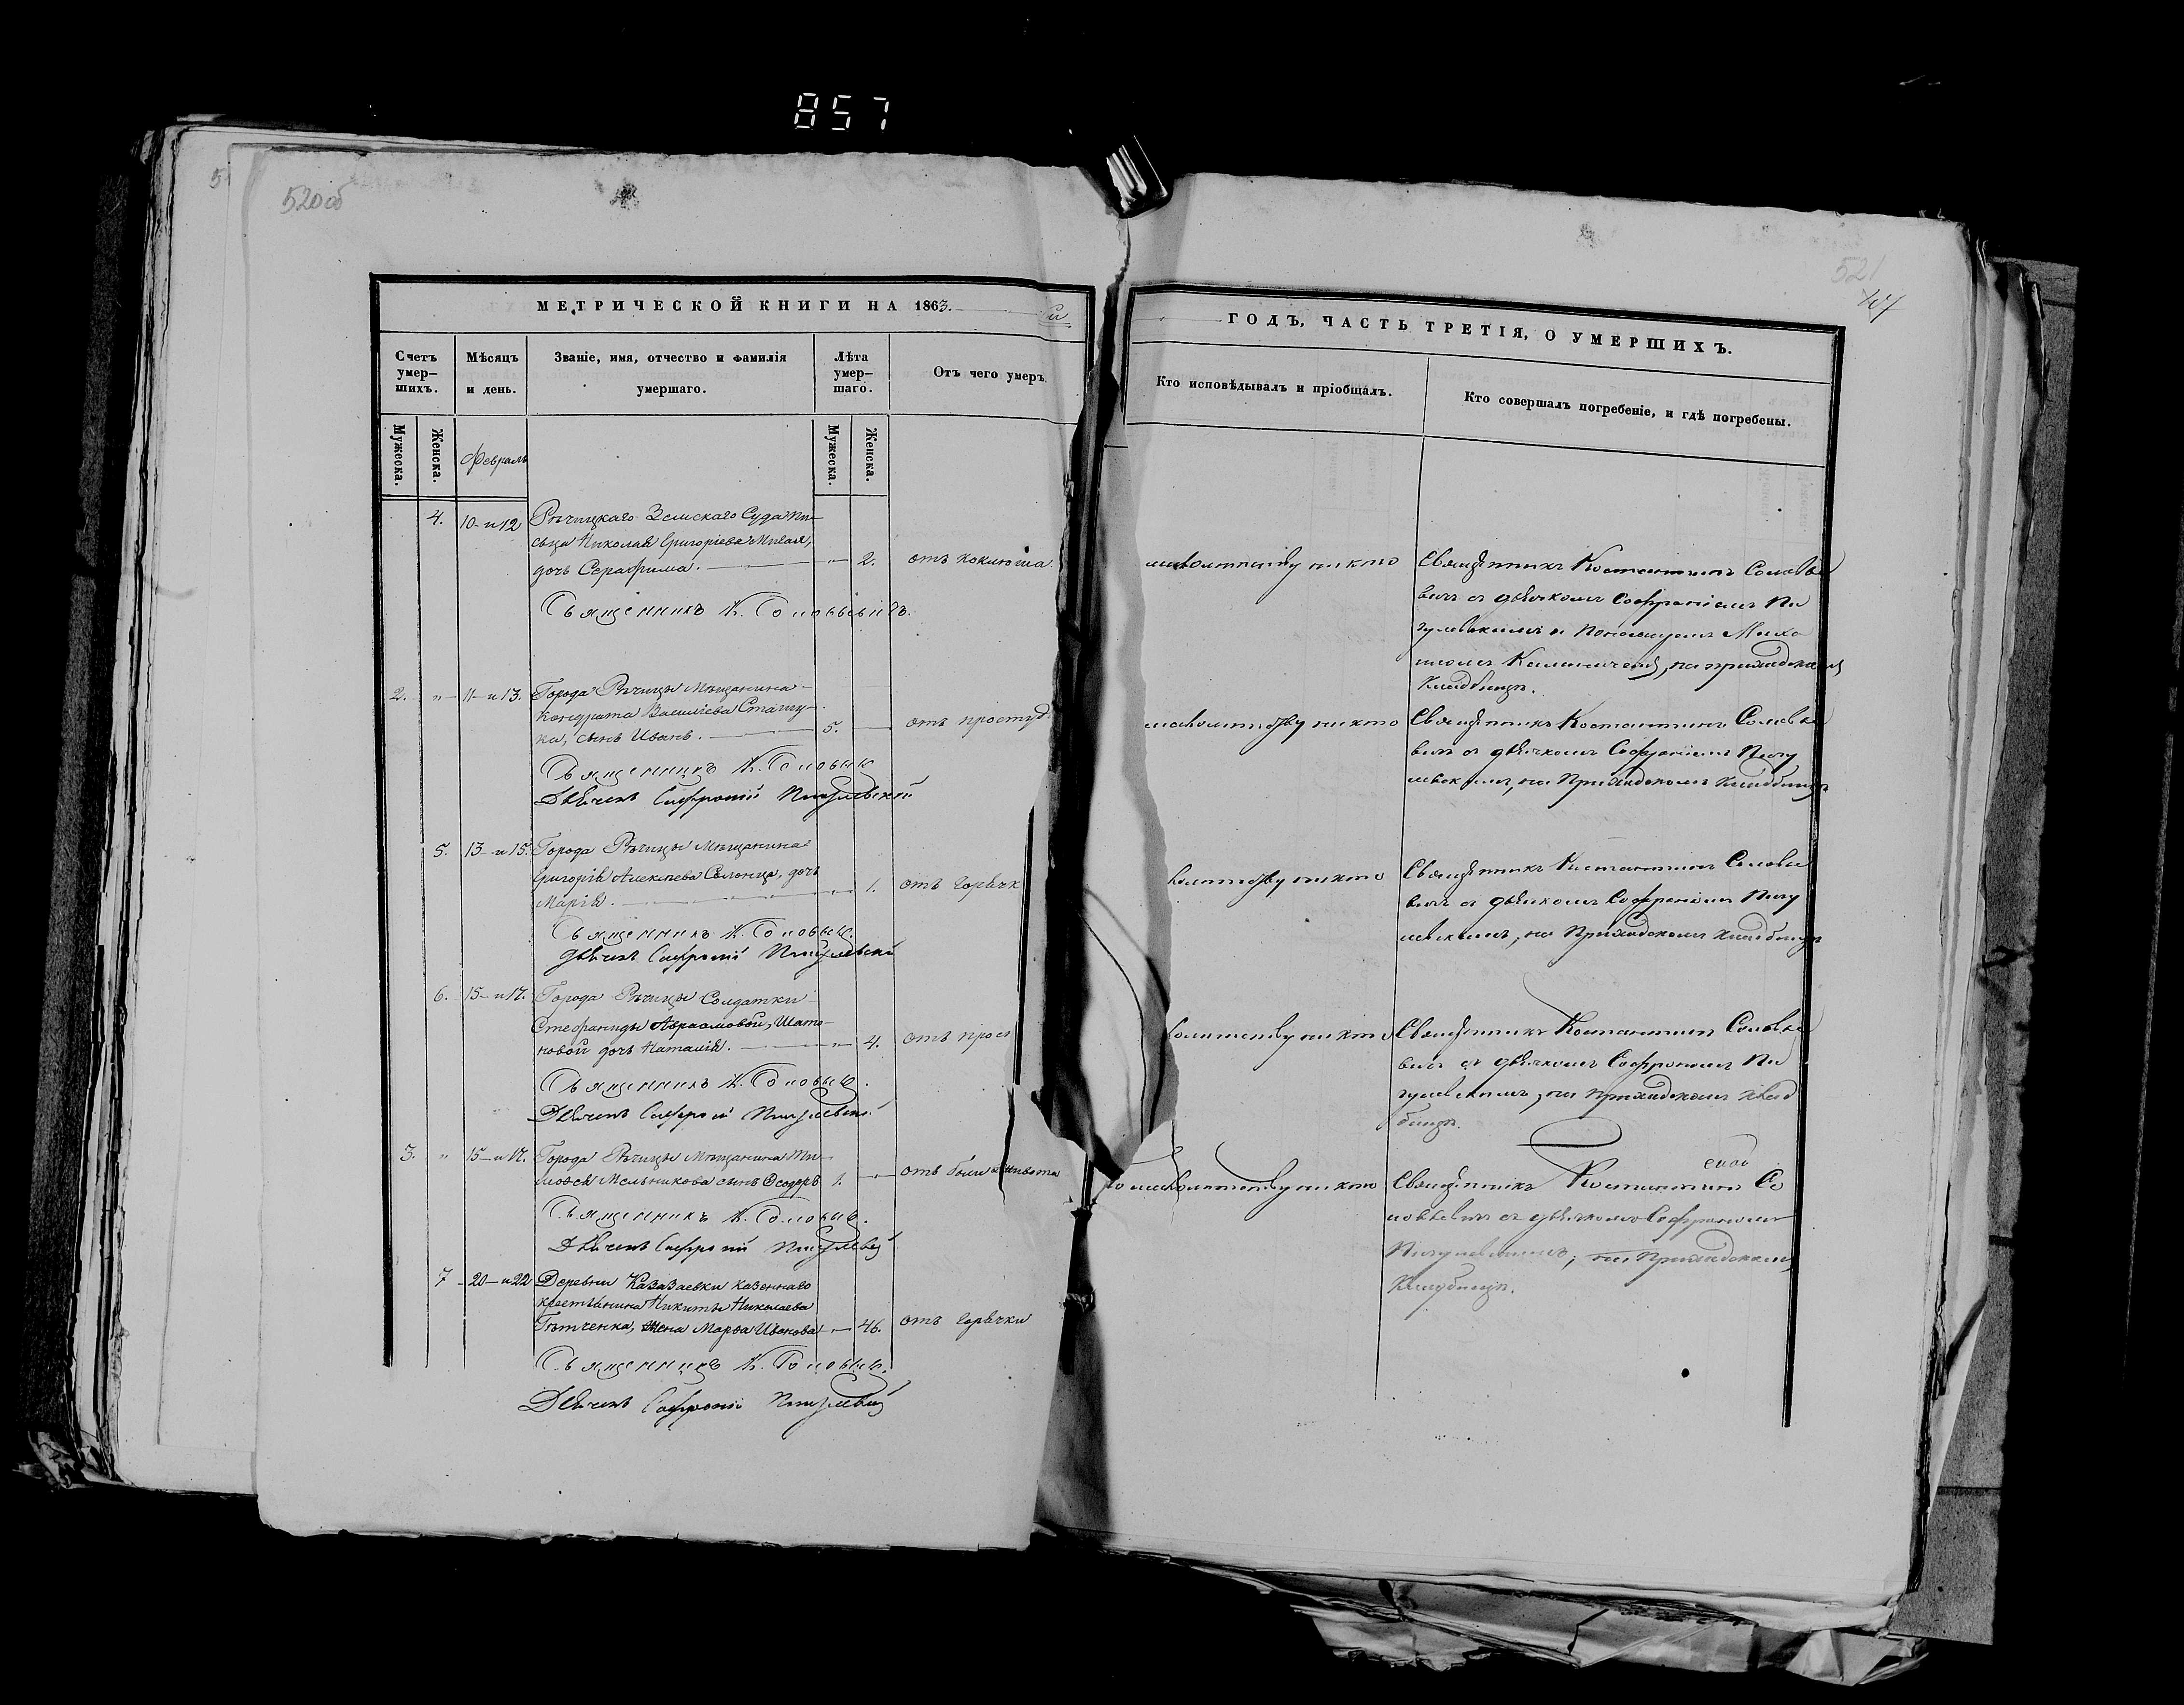 857
520 об
521
МЕТРИЧЕСКОЙ КНИГИ НА 1863.
ГОДЪ, ЧАСТЬ ТРЕТІЯ, О УМЕРШИХЪ.
Счетъ умер-шихъ.
Мѣсяцъ и день.
Званіе, имя, отчество и фамилія умершаго.
Лѣта умер-шаго.
Отъ чего умеръ.
Кто исповѣдывалъ и пріобщалъ.
Кто совершалъ погребеніе, и гдѣ погребены.
Мужеска.
Женска.
Февраль
Мужеска.
Женска.
4. 10 и 12 Рѣчицкаго Земскаго Суда Пи-
сьца Николая Григоріева
дочь Серафима. 2. отъ коклюша
Священникъ К. Соловьевичъ.
младенству никто
Священникъ Костантинъ Соловье
вичъ съ дьячкомъ Софроніемъ Пи
гулевскимъ и Пономаремъ
на приходскомъ
Кладбищѣ.
2. " 11 и 13. Города Рѣчицы Мѣщанина
Кондрата Василіева
сынъ Иванъ. 5. отъ простуд
Священникъ К. Соловьев
Дьячекъ Софроній Пигулевскій
никто
Священникъ Костантинъ Соловье
вичъ съ дьячкомъ Софроніемъ Пигу
левскимъ, на Приходскомъ Кладбищѣ
5. 13 и 15. Города Рѣчицы Мѣщанина
Григорія Алексѣева дочь
Марія. " 1. отъ горячк
Священникъ К. Соловьев.
Дьячекъ Софроній Пигулевскій
никто
Священникъ Костантинъ Соловье
вичъ съ дьячкомъ Софроніемъ Пигу
левскимъ, на Приходскомъ кладбищѣ
6. 15 и 17. Города Рѣчицы Солдатки
Стефаниды Авраамовой, Шата-
новой дочь Наталія. " 4. отъ прос
Священникъ К. Соловьев.
Дьячекъ Софроній Пигулевскій
никто
Священникъ Костантинъ Соловье
вичъ съ дьячкомъ Софроніемъ Пи
гулевскимъ, на приходскомъ клад
бищѣ.
3. " 15 и 17. Города Рѣчицы Мѣщанина Ти-
моѳея Мельникова сынъ Ѳеодоръ 1. отъ боли живота
Священникъ К. Соловьев.
Дьячекъ Софроній Пигулевскій
по младенству никто
Священникъ Костантинъ Со
ловьевичъ съ дьячкомъ Софроніемъ
Пигулевскимъ, на Приходскомъ
Кладбищѣ.
7 20 и 22 Деревни Казазаевки казеннаго
крестьянина Никиты Николаева
жена Марѳа Иванова " 46. отъ горячки
Священникъ К. Соловьев.
Дьячекъ Софроній Пигулевскій